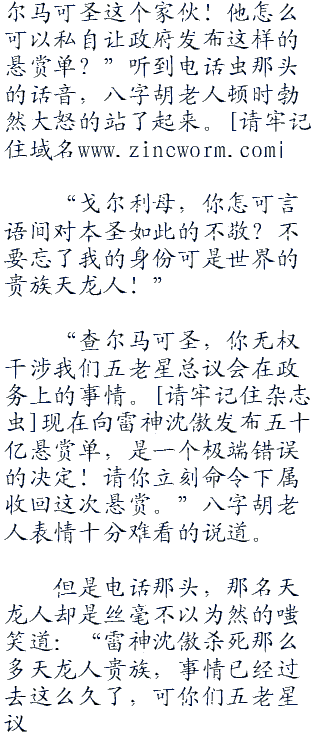 尔马可圣这个家伙！他怎么
可以私自让政府发布这样的
悬赏单？”听到电话虫那头
的话音，八字胡老人顿时勃
然大怒的站了起来。[请牢记
住域名www.zincworm.com|
“戈尔利母，你怎可言
语间对本圣如此的不敬？不
要忘了我的身份可是世界的
贵族天龙人！”
“查尔马可圣，你无权
干涉我们五老星总议会在政
务上的事情。[请牢记住杂志
虫]现在向雷神沈傲发布五十
亿悬赏单，是一个极端错误
的决定！请你立刻命令下属
收回这次悬赏。”八字胡老
人表情十分难看的说道。
但是电话那头，那名天
龙人却是丝毫不以为然的嗤
笑道：“雷神沈傲杀死那么
多天龙人贵族，事情已经过
去这么久了，可你们五老星
议